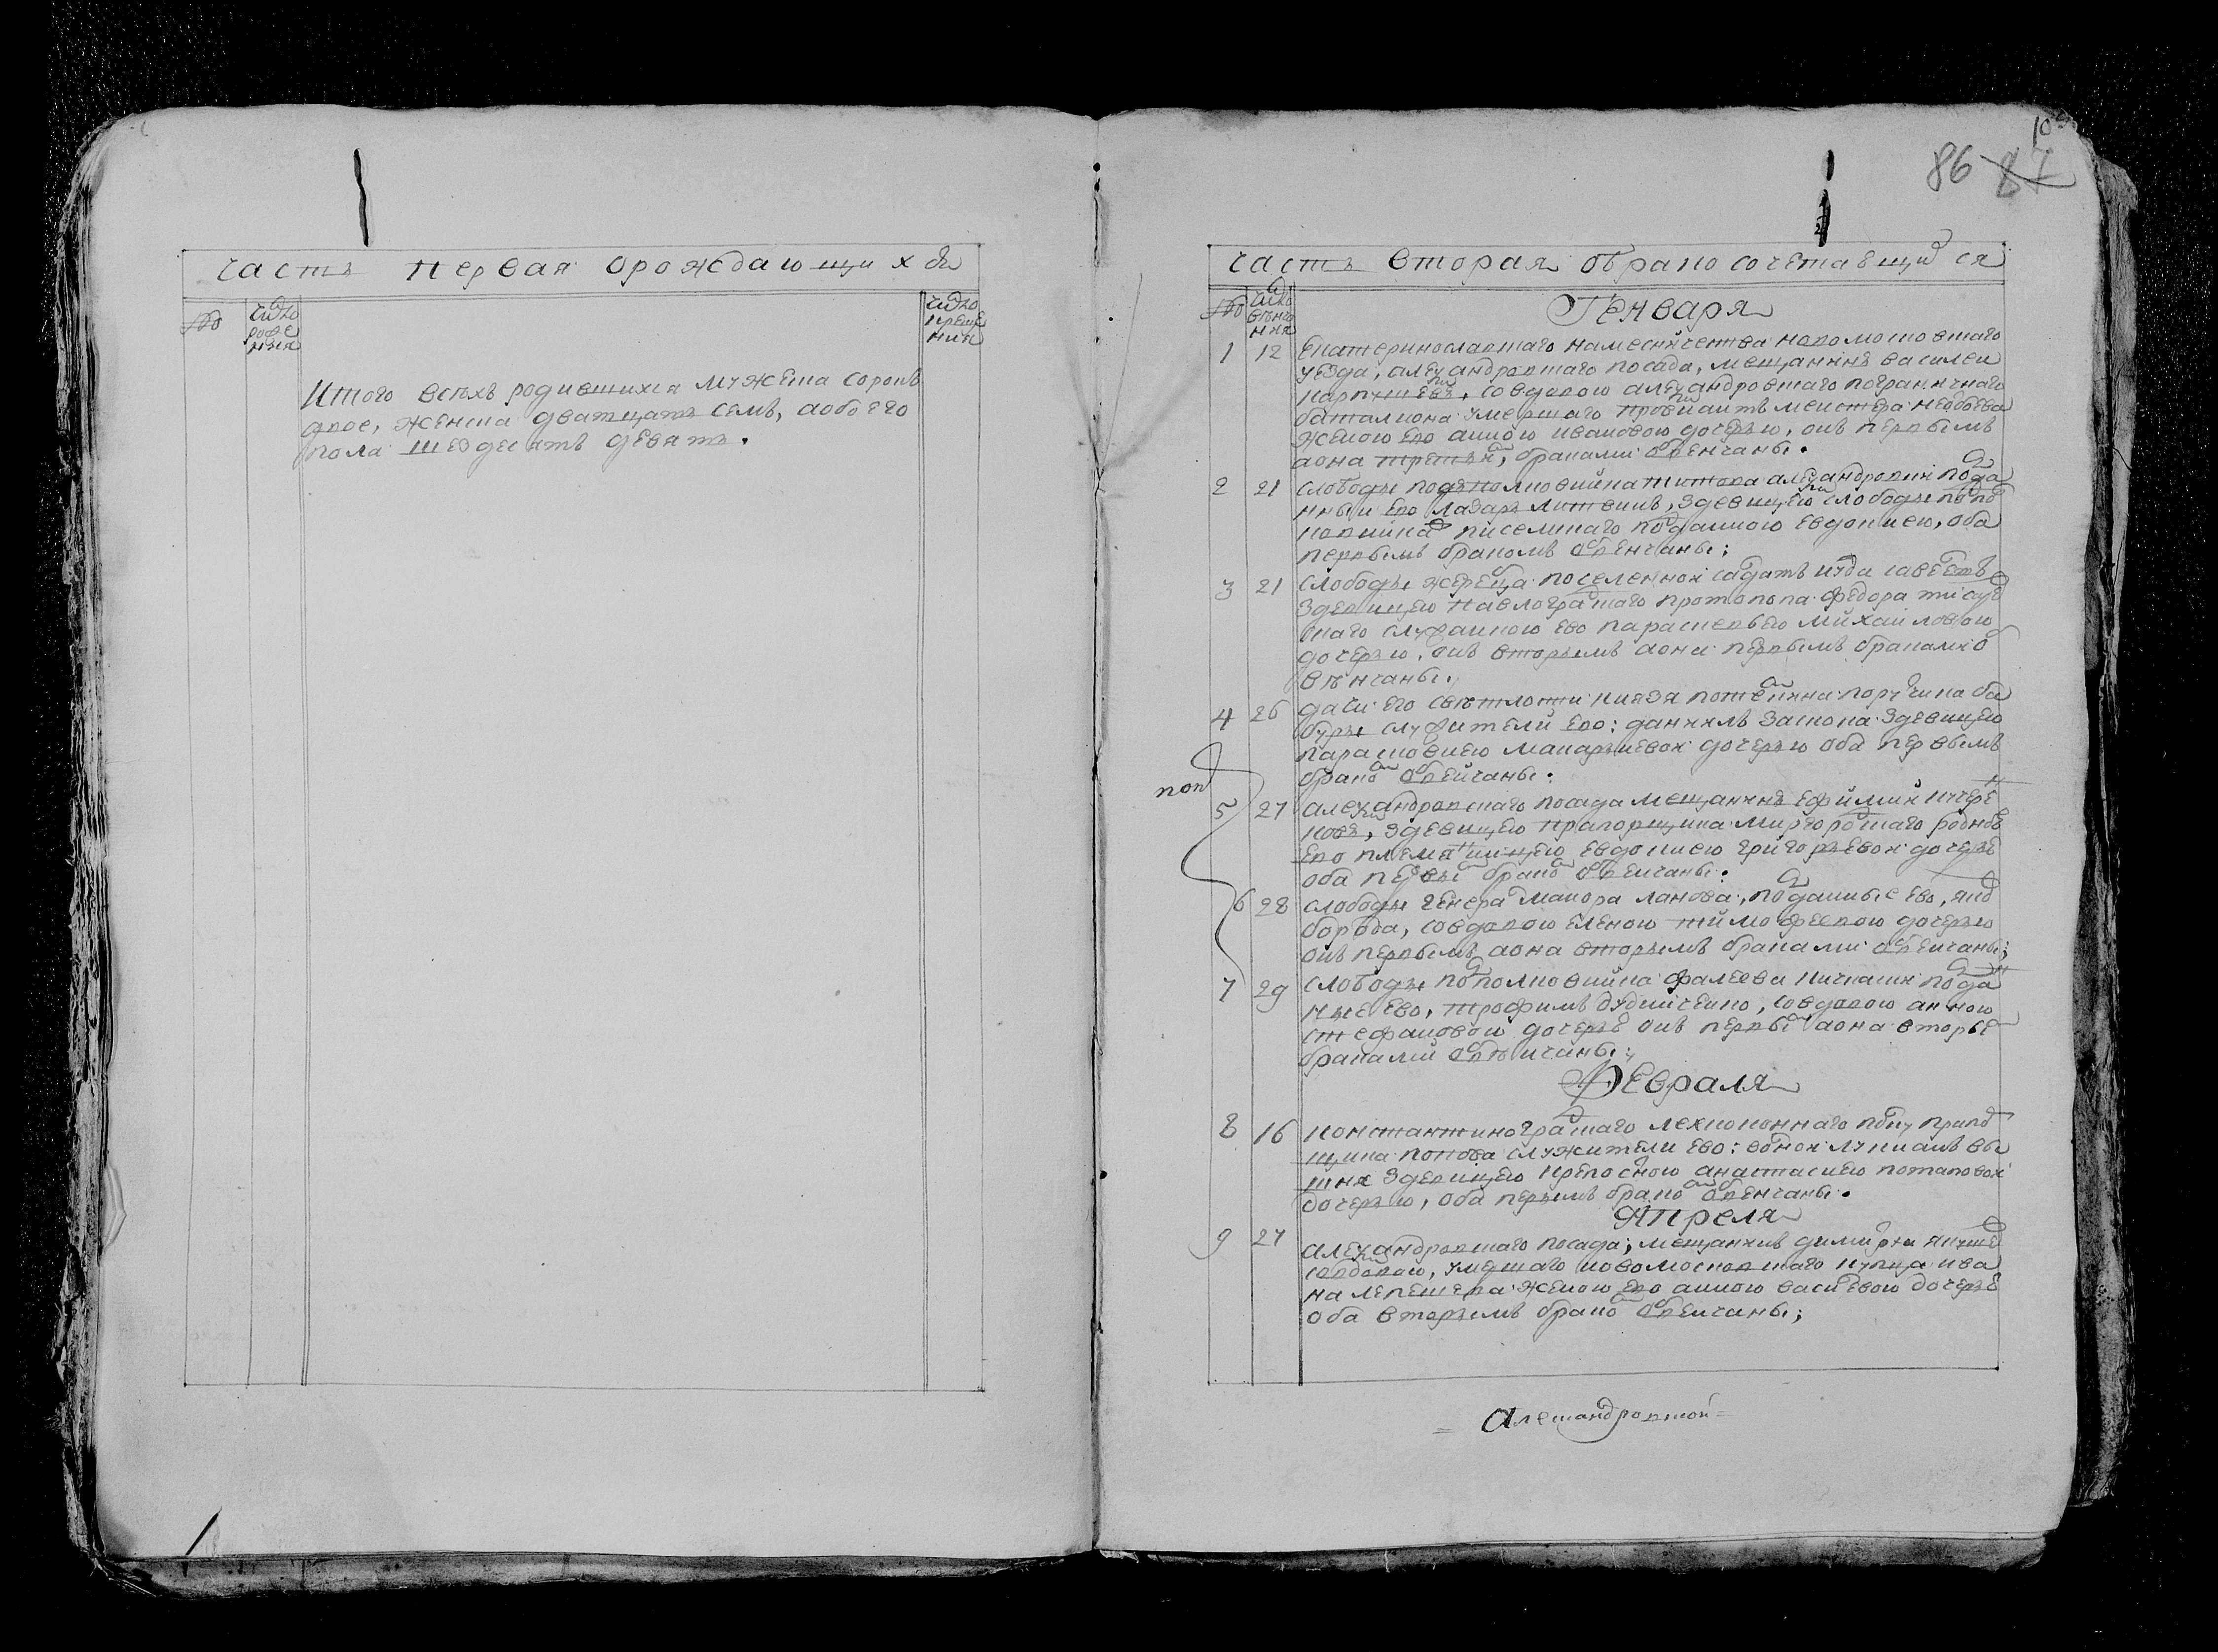 часть первая о рождающихся
№ число рожде ния
число креще ния
Итого всехъ родившихся мужеска сорокъ
двое, женска дватцать семь, а обоего
пола шездесятъ девять.
103
86 87
часть вторая о бракосочетавшихся
№ число венча ния
Генваря
1 12 Екатеринославскаго наместничества новомосковскаго
уезда, александровскаго посада, мещанинъ василеи
совдовою александровскаго пограничнаго
баталиона умершаго провиантъ меистера
женою ево анною ивановою дочерью, онъ первымъ
а она третьи, браками обвенчаны.
2 21 слободы подполковника александрович подда
нныи ево лазарь литвинъ, здевицею слободы подпо
ковника писемскаго подданною евдокиею, оба
первымъ бракомъ обвенчаны;
3 21 слободы жеребца поселенной салдатъ
здевицею павлоградскаго протопопа федора
скаго служанкою ево параскевьею михаиловою
дочерью, онъ вторымъ а она первымъ бракамиоб
вѣнчаны.
4 26 дачи его светлости князя потемкина порутчика ба
буры служители ево: даниилъ заслона здевицею
парасковиею макарьевой дочерью оба первымъ
бракомъ обвенчаны.
поп
5 27 александровскаго посада мещанинъ ефимий кучере
новъ, здевицею прапорщика миргородскаго родною
ево племянницею евдокиею григорьевой дочерью
оба первымъ бракомъ обвенчаны.
6 28 слободы генерал маиора ланова, подданные ево, яков
борода, совдовою еленою тимофеевою дочерью
онъ первымъ а она вторымъ браками обвенчаны;
7 29 слободы подполковника фалеева кичкаски подда
ные ево, трофимъ дудниченко, совдовою анною
стефановой дочерью онъ первым а она вторым
браками обвѣнчаны;
Февраля
8 16 константиноградскаго лехкоконнаго полку прапор
щика попова служители ево: войнои лукианъ
здевицею крепосною анастасиею потаповой
дочерью, оба первымъ бракомъ обвенчаны.
Апреля
9 27 александровскаго посада, мещанинъ димитри
совдовою, умершаго новомосковскаго купца ива
на лепешева женою ево анною василевою дочерью
оба вторымъ бракомъ обвенчаны;
= Александровской =